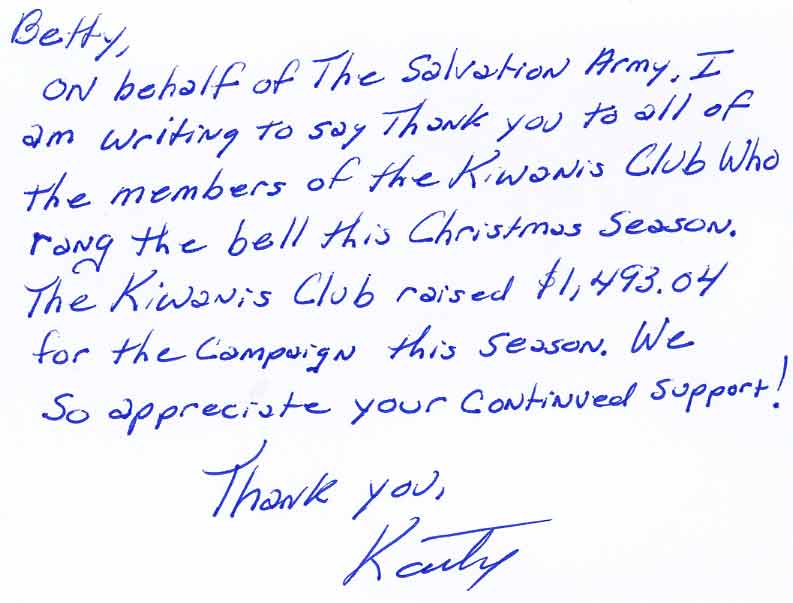 Betty,
On behalf of The Salvation Army, I
am writing to say Thank you to all of
the members of the Kiwanis Club Who
rang the bell this Christmas Season.
The Kiwanis Club raised $1,493.04
for the Campaign this season. We
So appreciate your Continued support!
Thank you,